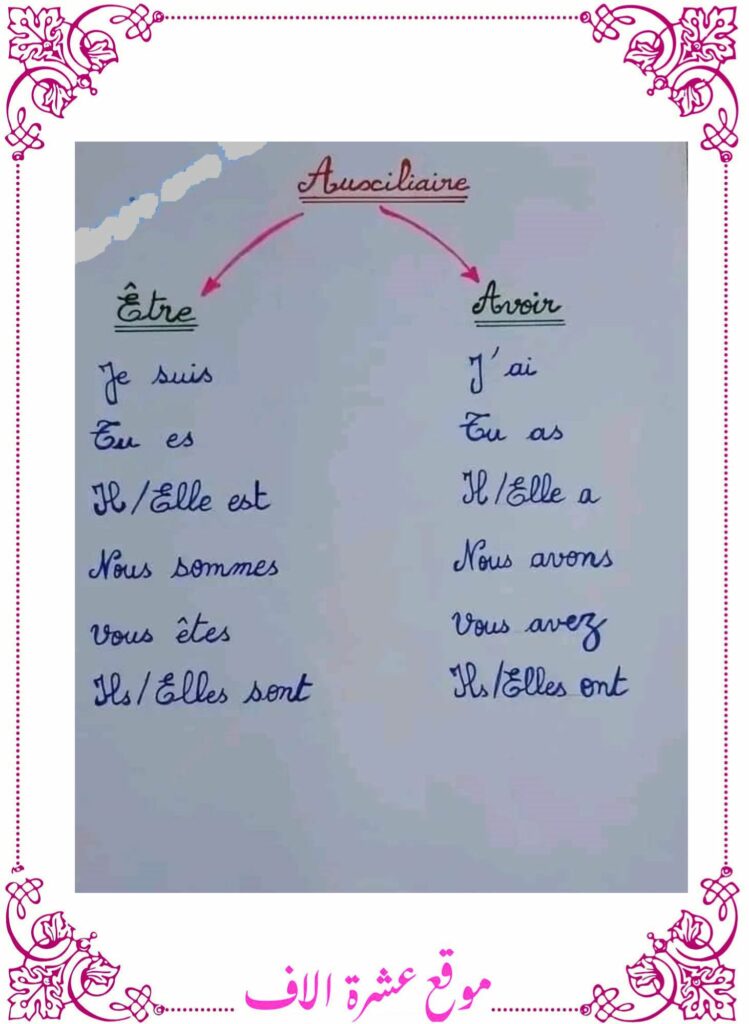 Auxiliaire
Être
Je suis
Tu es
Il/Elle est
Nous sommes
Vous êtes
Ils/Elles sont
Avoir
J'ai
Tu as
Il/Elle a
Nous avons
Vous avez
Ils/Elles ont
موقع عشرة الاف